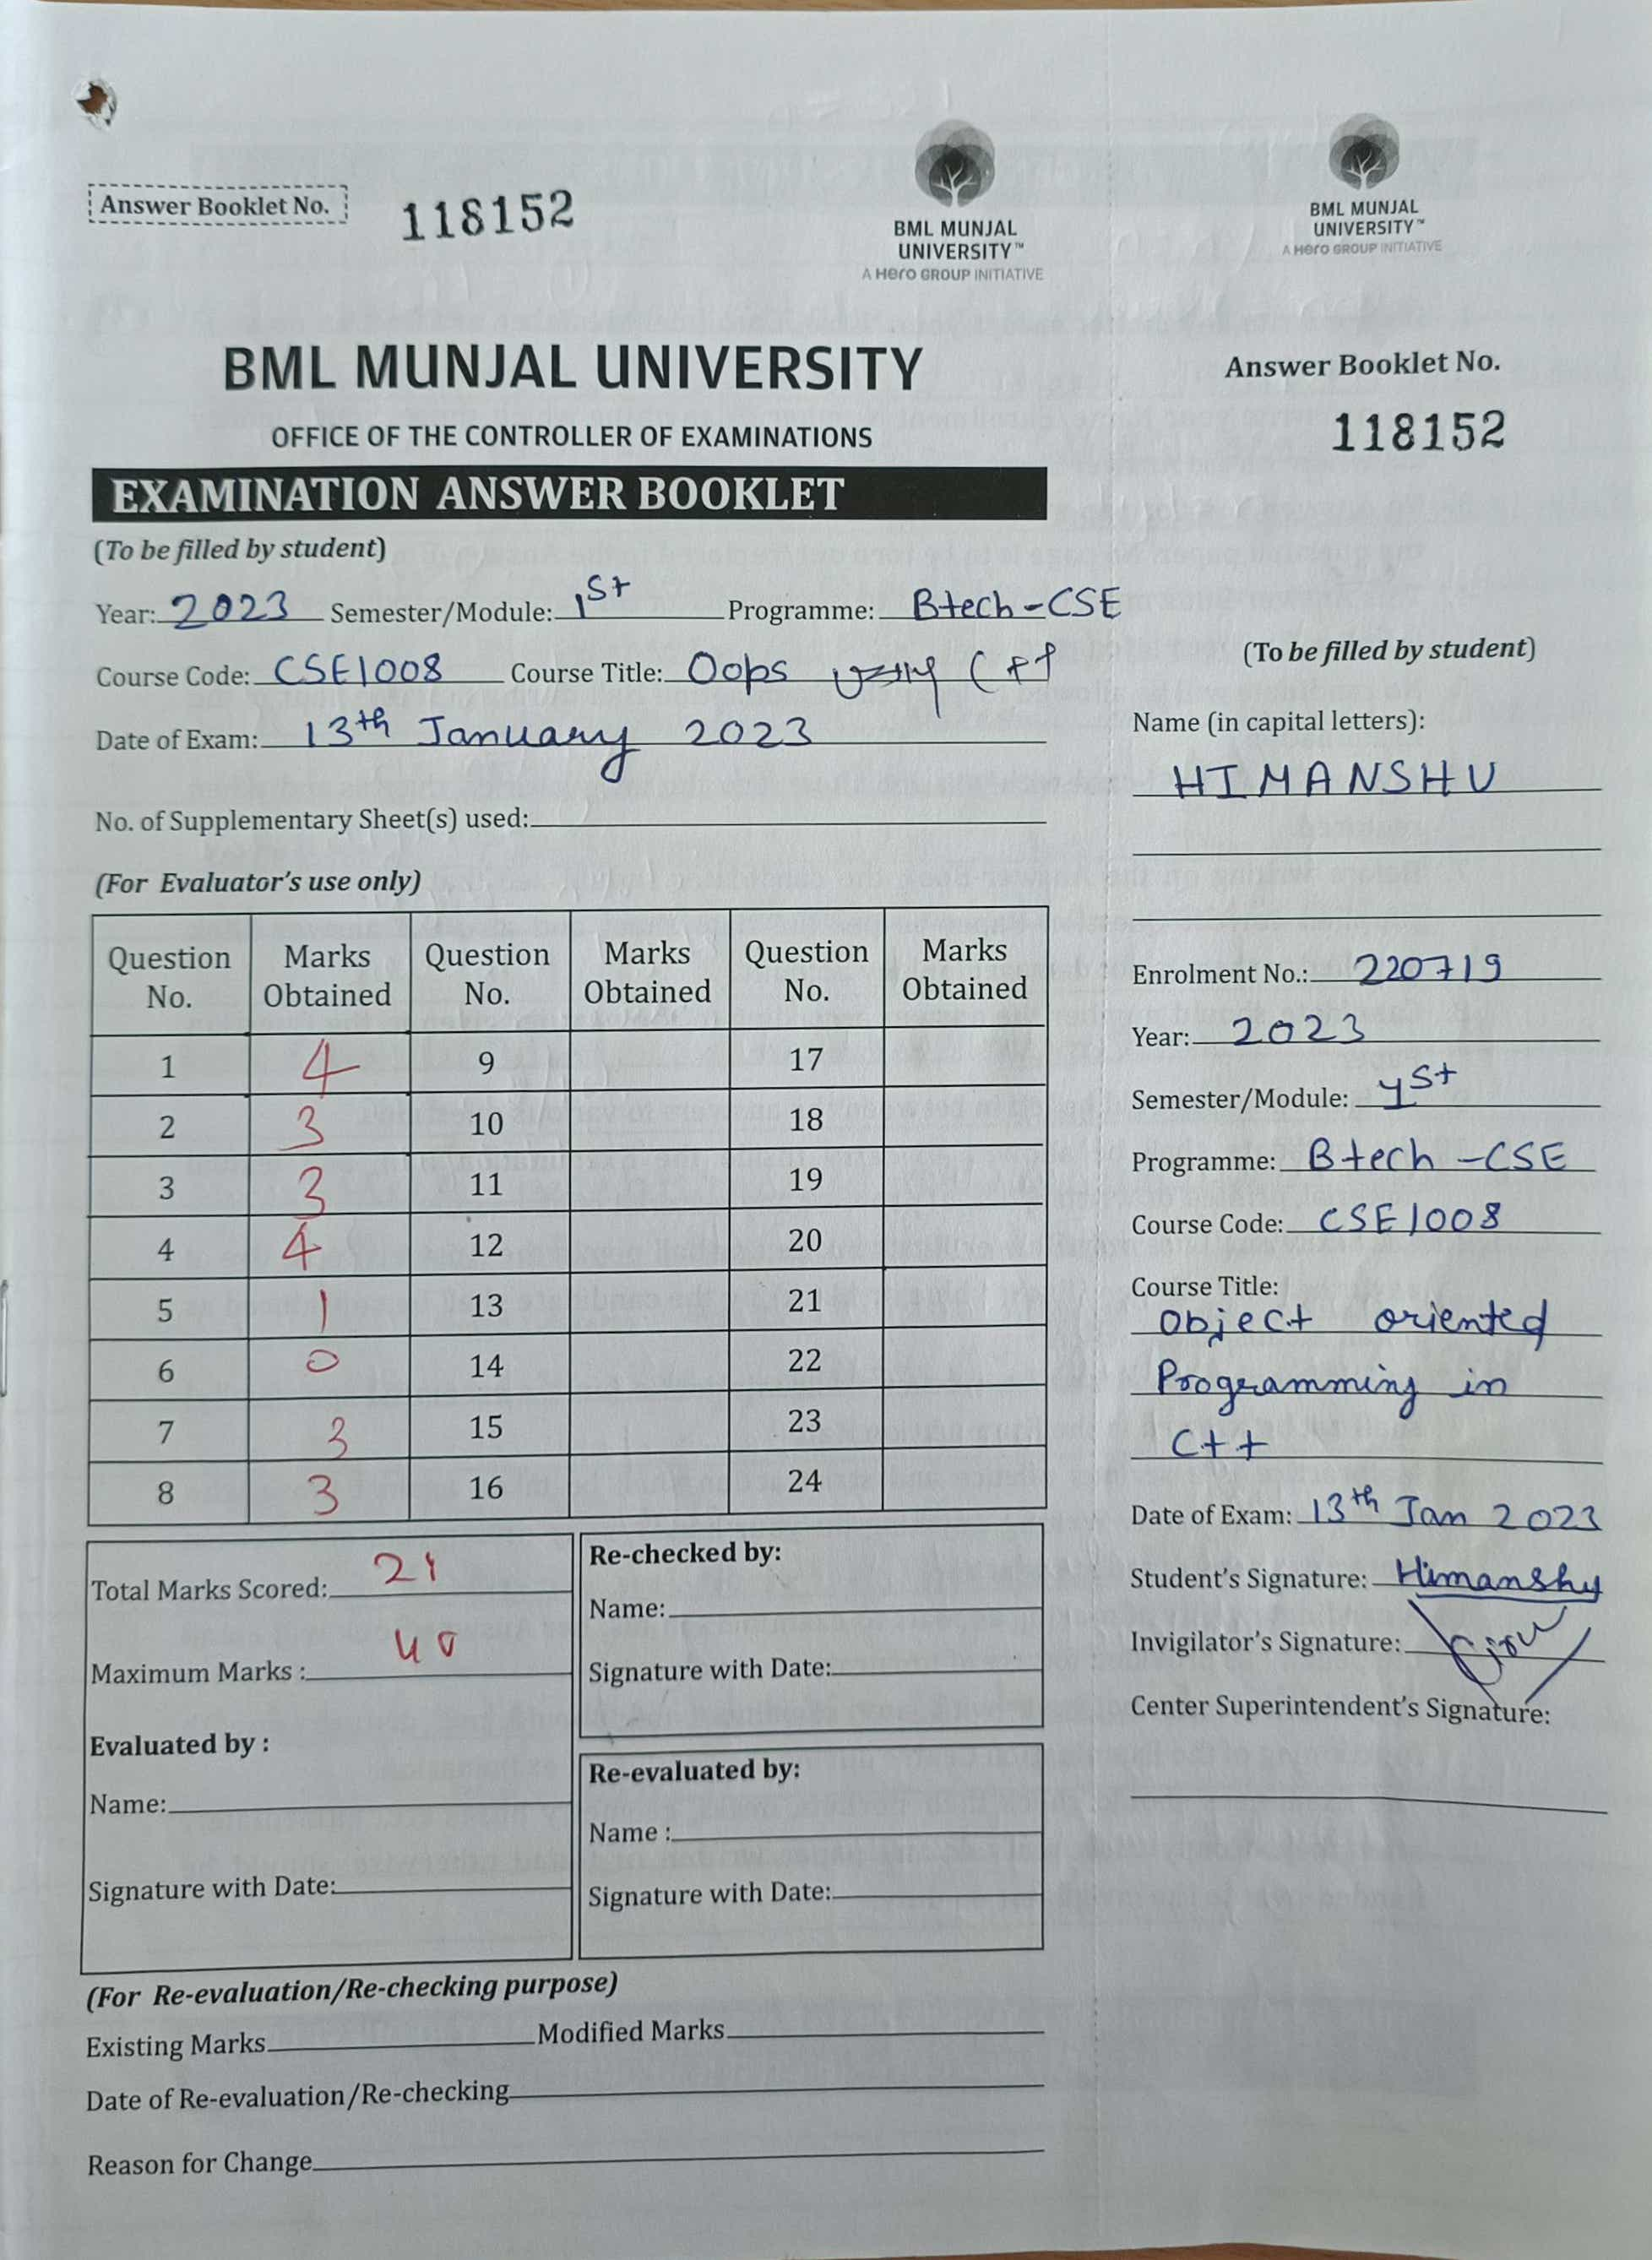 Answer Booklet No.
118152
BML MUNJAL
UNIVERSITY™
A Hero GROUP INITIATIVE
BML MUNJAL UNIVERSITY
OFFICE OF THE CONTROLLER OF EXAMINATIONS
EXAMINATION ANSWER BOOKLET
(To be filled by student)
Year: 2023 Semester/Module: 1st Programme: Btech-CSE
Course Code: CSE1008 Course Title: Oops using C++
Date of Exam: 13th January 2023
No. of Supplementary Sheet(s) used:
(For Evaluator's use only)
Question No. Marks Obtained Question No. Marks Obtained Question No. Marks Obtained
1 4 9 17
2 3 10 18
3 3 11 19
4 4 12 20
5 1 13 21
6 0 14 22
7 3 15 23
8 3 16 24
Total Marks Scored: 21
Maximum Marks : 40
Evaluated by :
Name:
Signature with Date:
Re-checked by:
Name:
Signature with Date:
Re-evaluated by:
Name :
Signature with Date:
(For Re-evaluation/Re-checking purpose)
Existing Marks Modified Marks
Date of Re-evaluation/Re-checking
Reason for Change
BML MUNJAL
UNIVERSITY™
A Hero GROUP INITIATIVE
Answer Booklet No.
118152
(To be filled by student)
Name (in capital letters):
HIMANSHU
Enrolment No.: 220719
Year: 2023
Semester/Module: 1st
Programme: Btech-CSE
Course Code: CSE1008
Course Title:
Object oriented
Programming in
C++
Date of Exam: 13th Jan 2023
Student's Signature: Himanshu
Invigilator's Signature:
Center Superintendent's Signature: